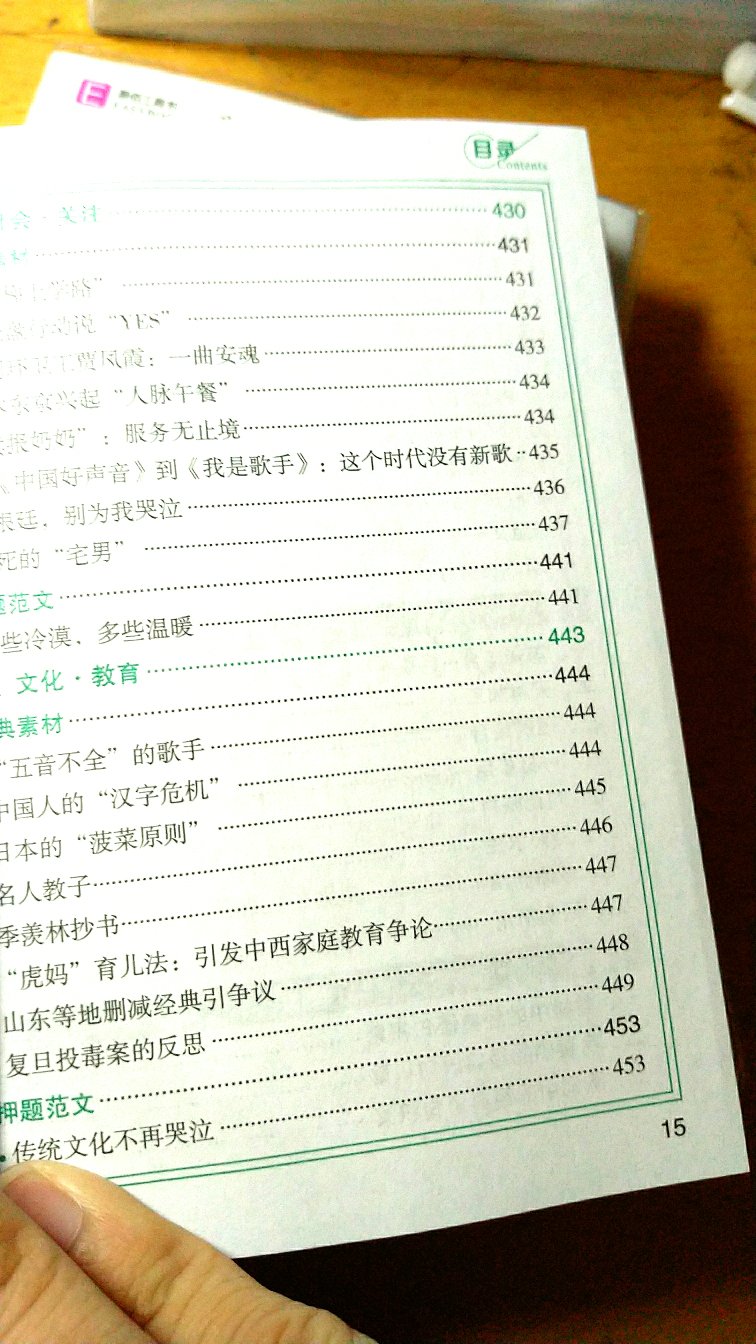 目录
Contents
会·关注 430
431
学路” 431
说“YES” 432
贾风霞：一曲安魂 433
东京兴起“人脉午餐” 434
振奶奶”：服务无止境 434
《中国好声音》到《我是歌手》：这个时代没有新歌 435
廷，别为我哭泣 436
死的“宅男” 437
题范文 441
些冷漠，多些温暖 441
文化·教育 443
典素材 444
“五音不全”的歌手 444
中国人的“汉字危机” 444
日本的“菠菜原则” 445
名人教子 446
季羡林抄书 447
“虎妈”育儿法：引发中西家庭教育争论 447
山东等地删减经典引争议 448
复旦投毒案的反思 449
押题范文 453
·传统文化不再哭泣 453
15